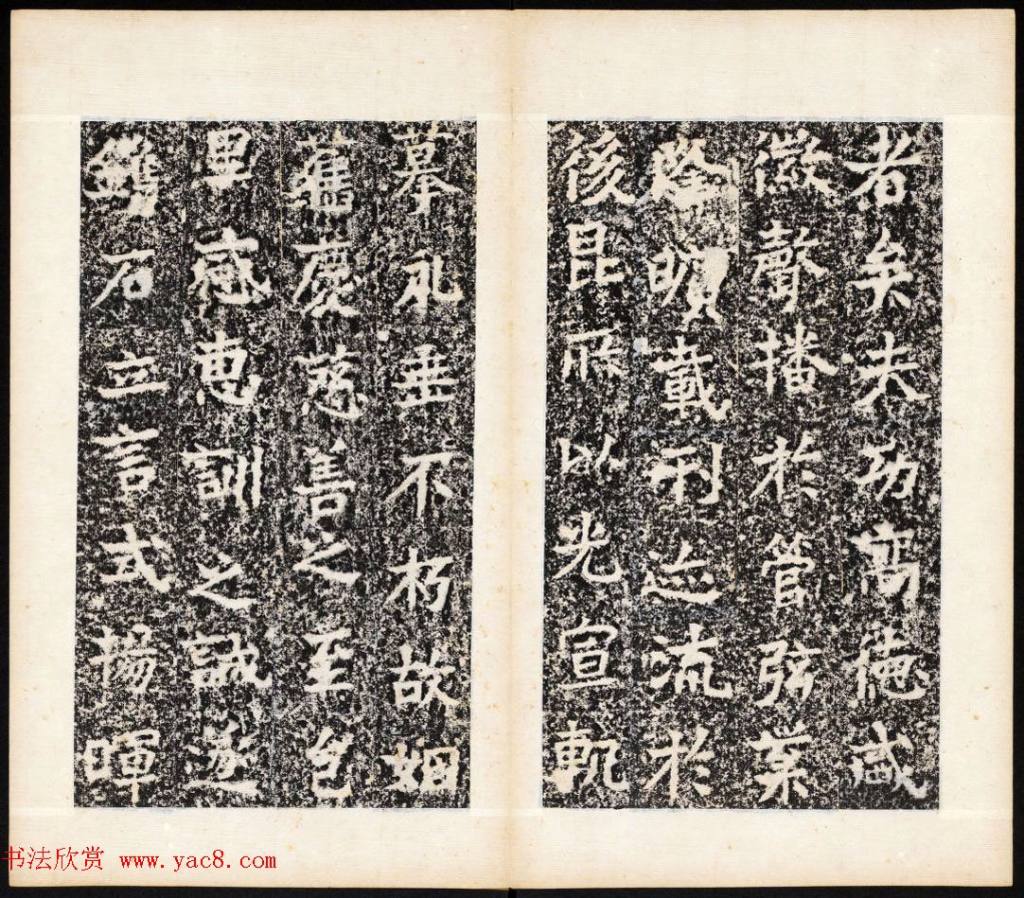 者矣夫功高德咸
徽聲播於管弦業
載刊迹流於
後昆所以光宣軌
摹永垂不朽故姻
舊慶慈善之至邑
里感惠訓之誠遂
鐫石立言式揚暉
书法欣赏 www.yac8.com